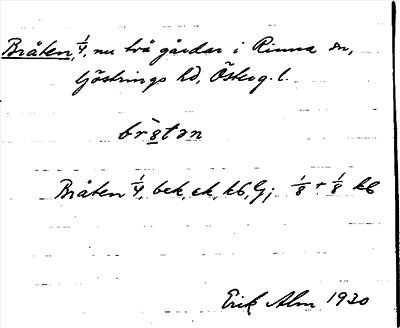 Bråten, 1/4, nu två gårdar i Rinna sn,
Göstrings hd, Österg. l.
bråtən
Bråten 1/4, bek, ek, kb, G; 1/8 + 1/8 kb
Erik Alm 1930